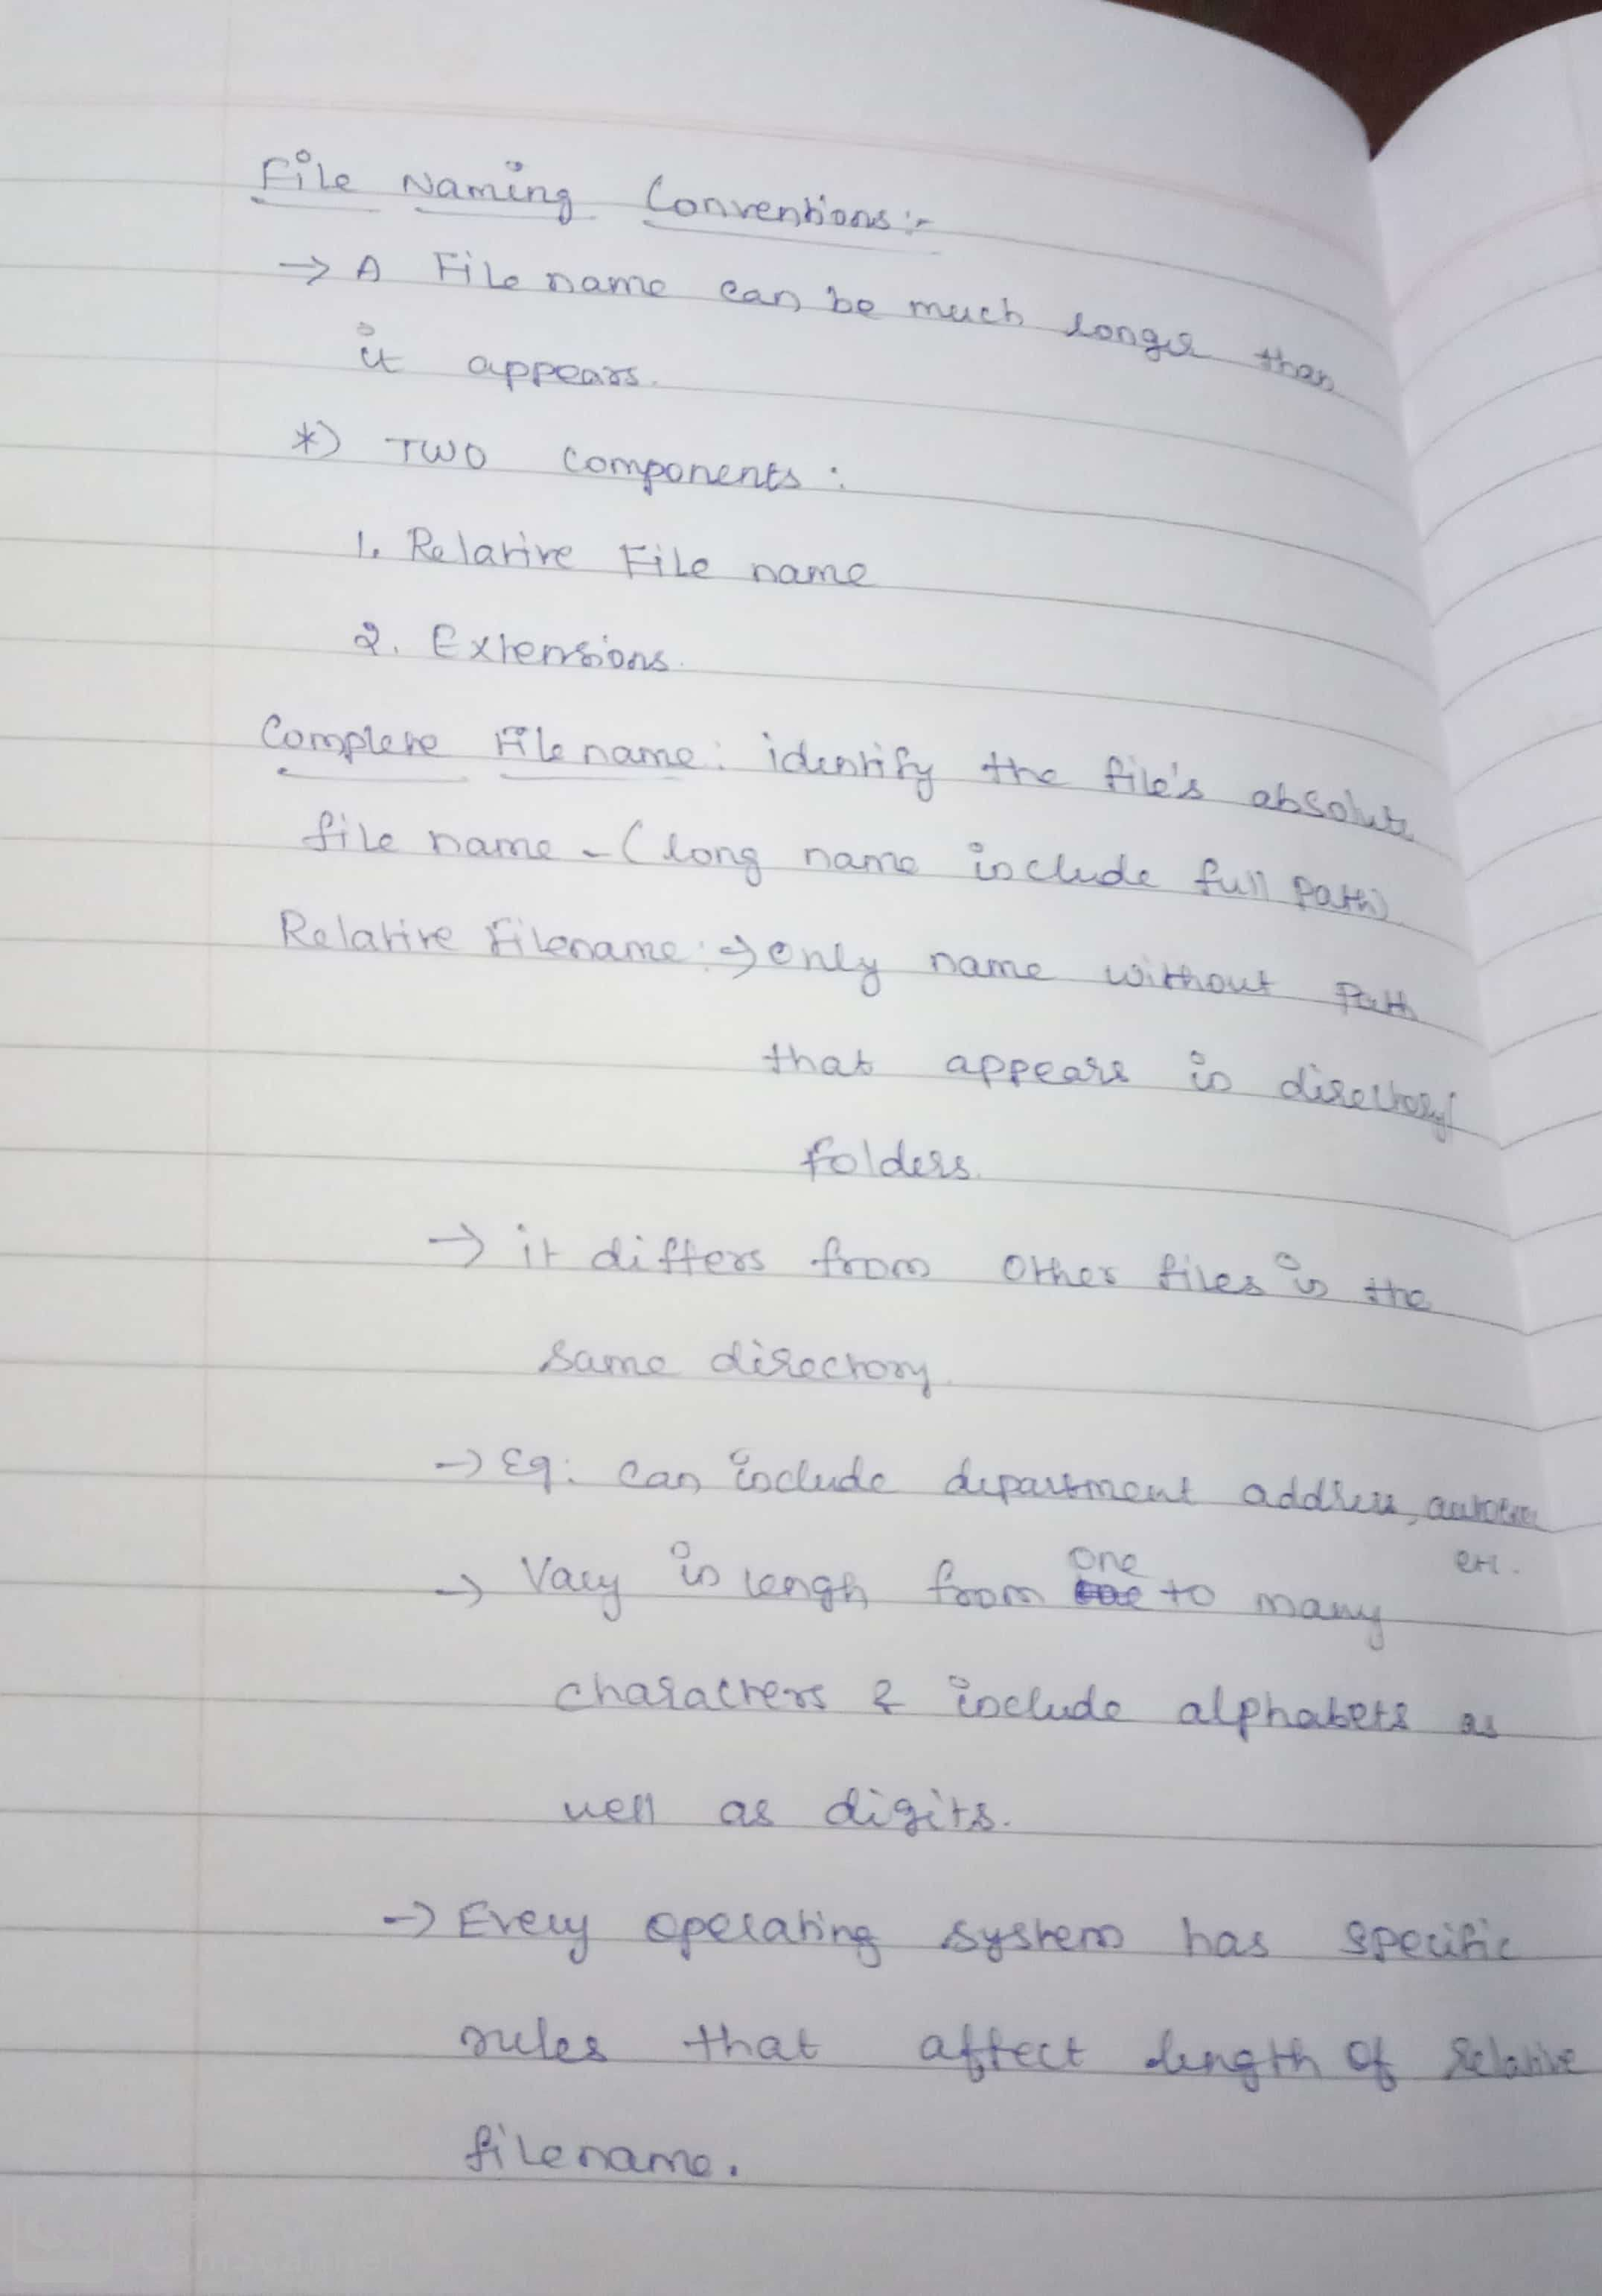 File Naming Conventions :-
→ A File name can be much longer than
it appears.
*) TWO Components :
1. Relative File name
2. Extensions.
Complete File name : identify the file's absolute
file name - (long name include full path)
Relative Filename : → Only name without Path
that appears in directory/
folders.
→ it differs from other files in the
same directory.
→ Eg: can include department address,
etc.
→ Vary in lengh from one to many
characters & include alphabets as
well as digits.
→ Every operating system has specific
rules that affect length of relative
filename.